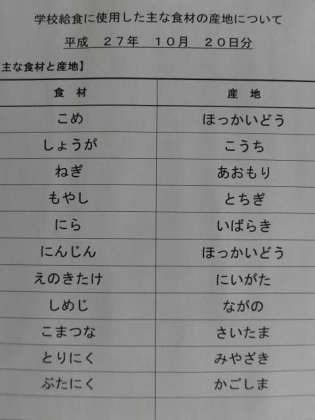 学校給食に使用した主な食材の産地について
平成 27年 10月 20日分
主な食材と産地】
食材 産地
こめ ほっかいどう
しょうが こうち
ねぎ あおもり
もやし とちぎ
にら いばらき
にんじん ほっかいどう
えのきたけ にいがた
しめじ ながの
こまつな さいたま
とりにく みやざき
ぶたにく かごしま